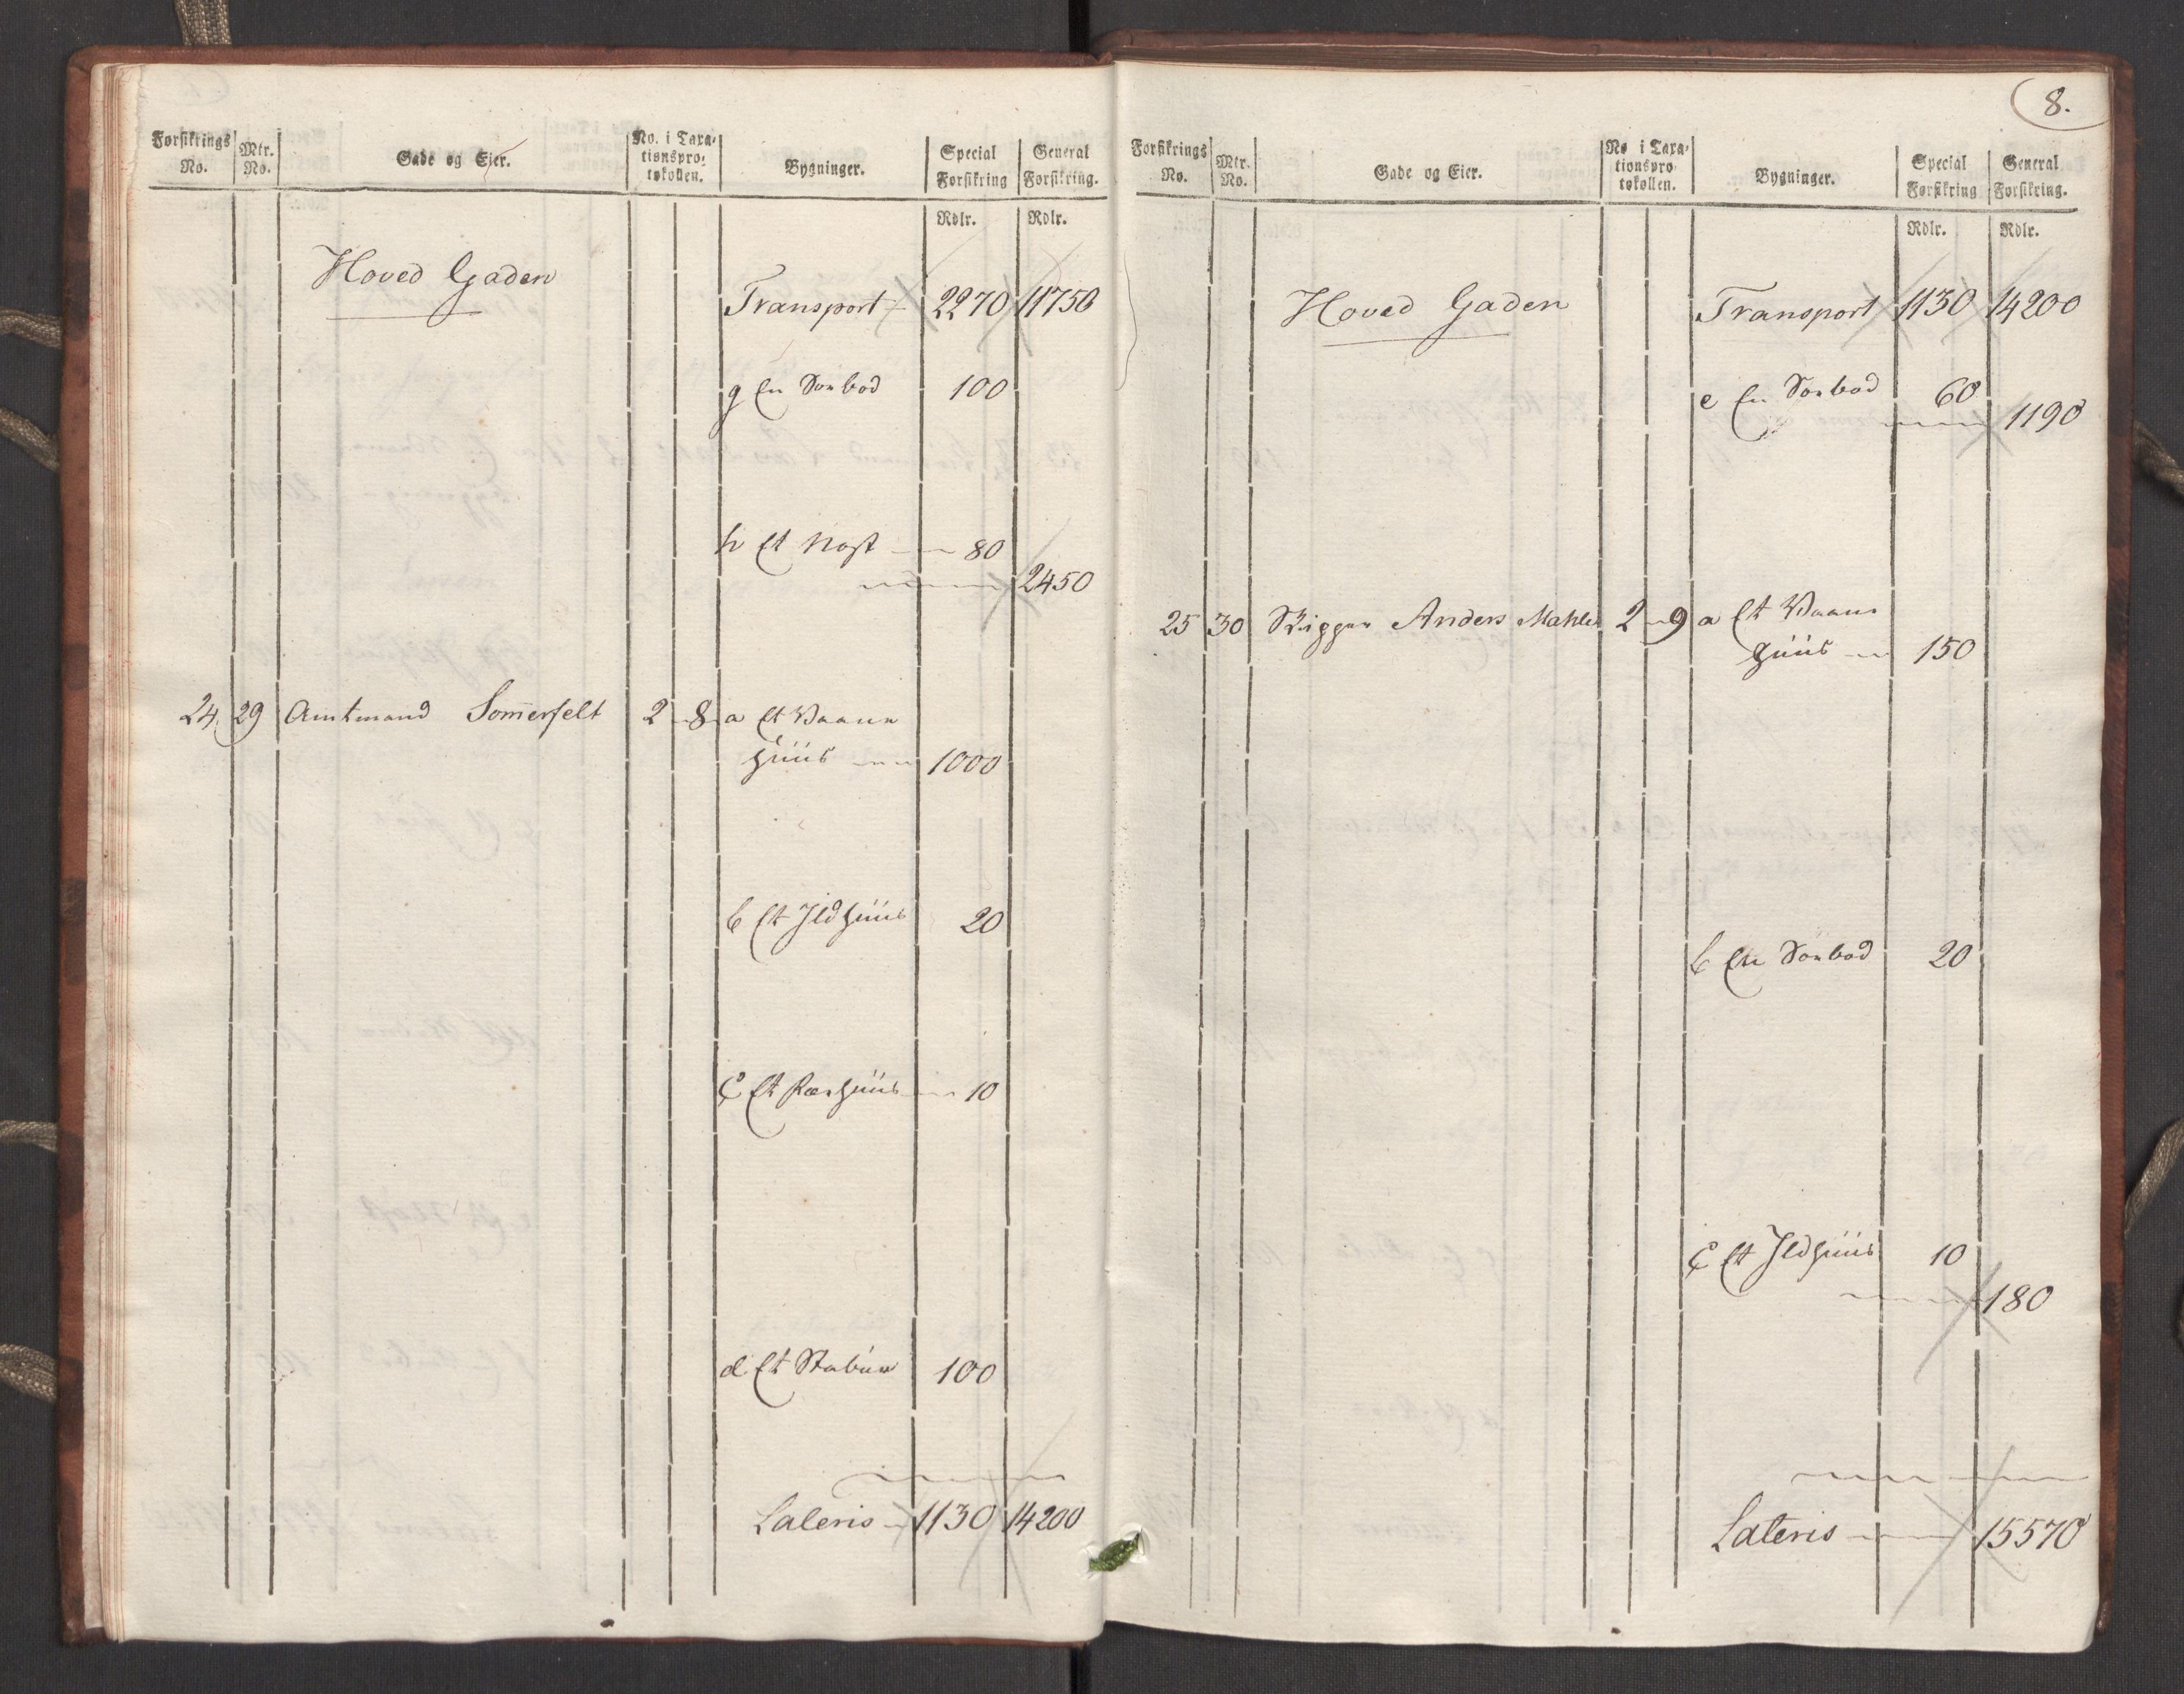 Forsikrings No. Mtr. No. Gade og Eier. No. i Taxationsprotokollen. Bygninger. Special Forsikring General Forsikring.
Rdlr. Rdlr.
Hoved Gaden
Transport 2270 11750
g En Søebod 100
h Et Nøst 80
2450
24. 29 Amtmand Somerfelt 2 8 a Et Vaane
Huus 1000
b Et Ildhuus 20
c Et Fæehuus 10
d Et Stabur 100
Lateris 1130 14200
8.
Forsikrings No. Mtr. No. Gade og Eier. No i Taxationsprotokollen. Bygninger. Special Forsikring General Forsikring.
Rdlr. Rdlr.
Hoved Gaden Transport 1130 14200
e En Søebod 60
1190
25 30 Skipper Anders Mahle 2 9 a Et Vaane
Huus 150
b En Søebod 20
c Et Ildhuus 10
180
Lateris 15570